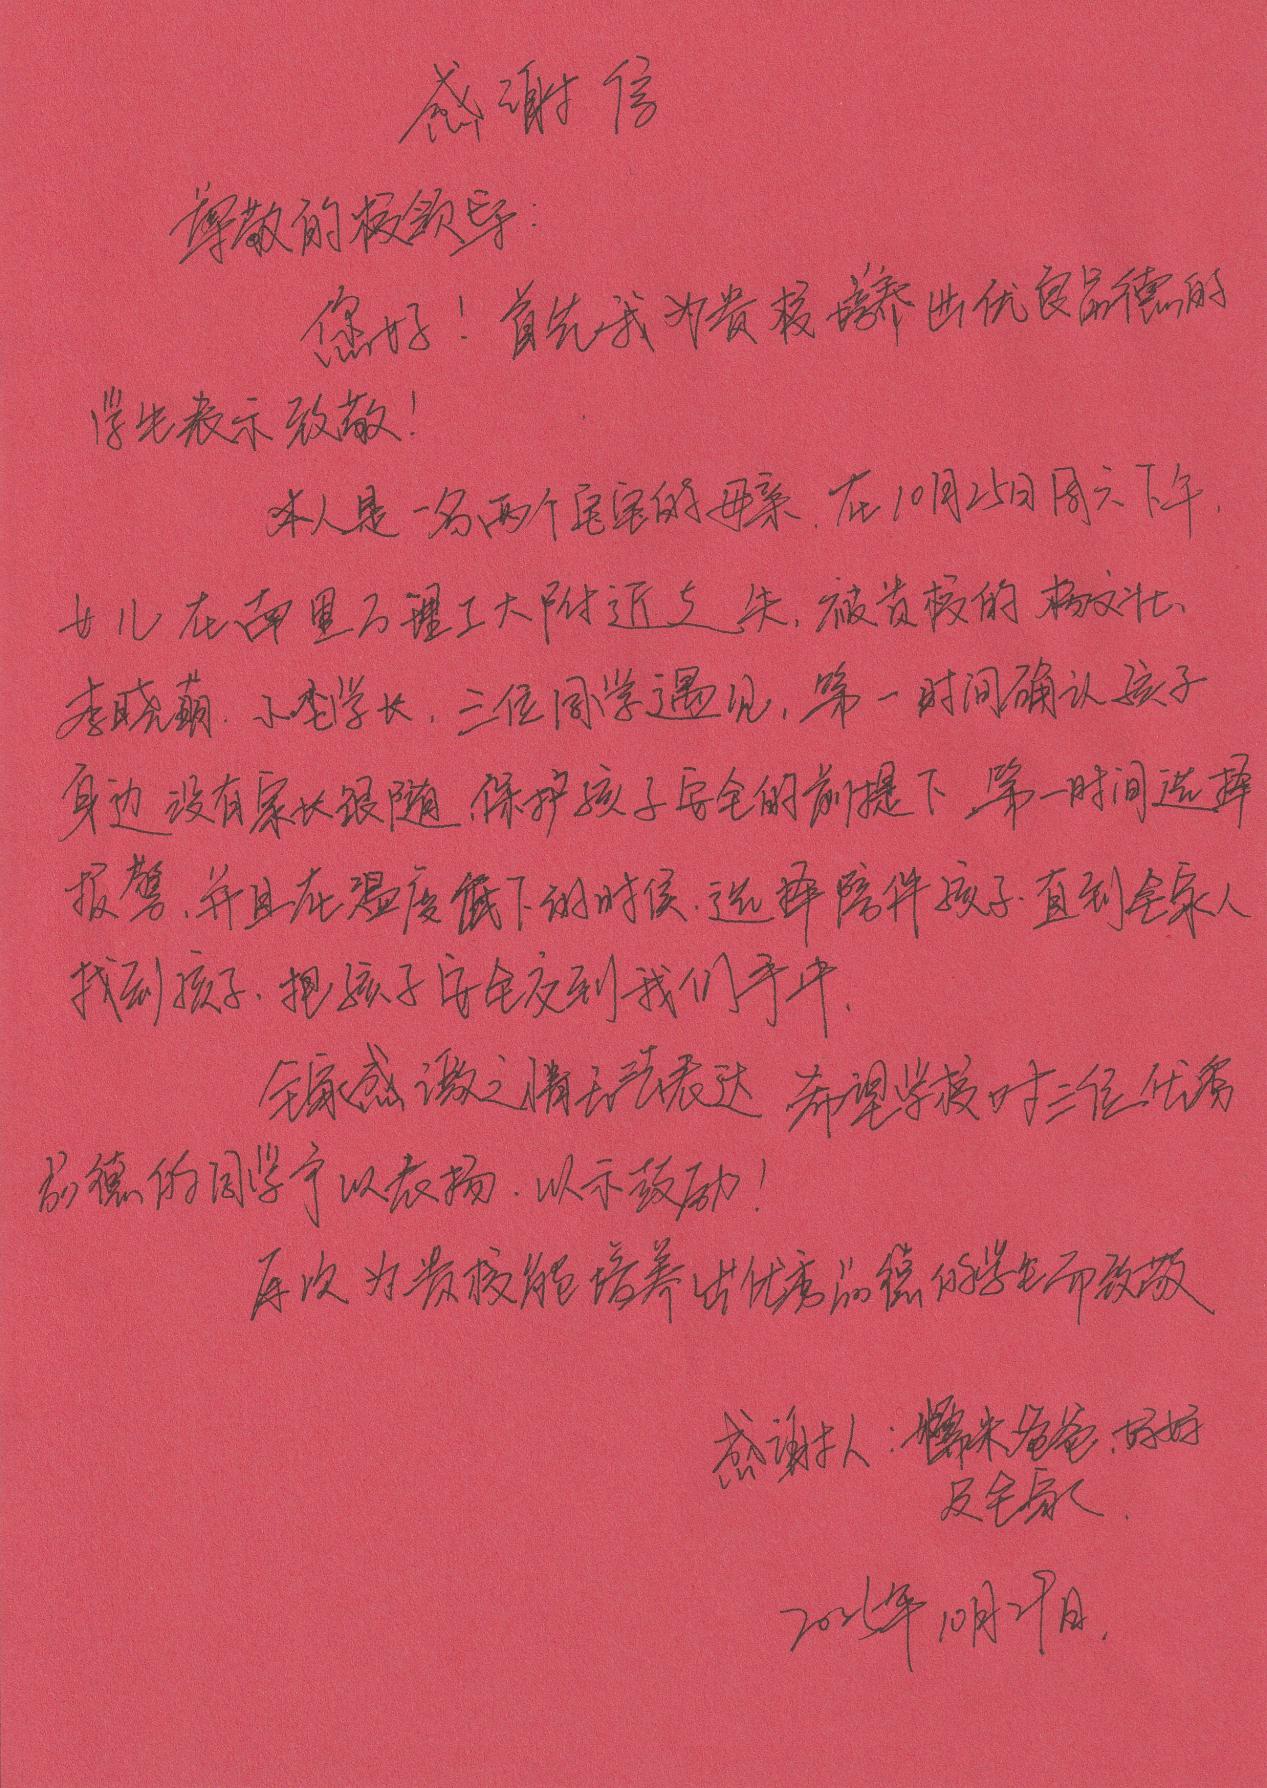 感谢信
尊敬的校领导：
您好！首先我为贵校培养出优良品德的
学生表示致敬！
本人是一名两个宝宝的母亲，在10月25日周六下午，
女儿在西里石理工大附近走失，被贵校的杨文壮、
李晓萌、小李学长，三位同学遇见，第一时间确认孩子
身边没有家长跟随，保护孩子安全的前提下，第一时间选择
报警，并且在温度低下的时候，选择陪伴孩子，直到全家人
找到孩子，把孩子安全交到我们手中。
全家感激之情无法表达 希望学校对三位优秀
品德的同学予以表扬，以示鼓励！
再次为贵校能培养出优秀品德的学生而致敬
感谢人：糯米爸爸、好好
及全家人。
2025年10月29日。